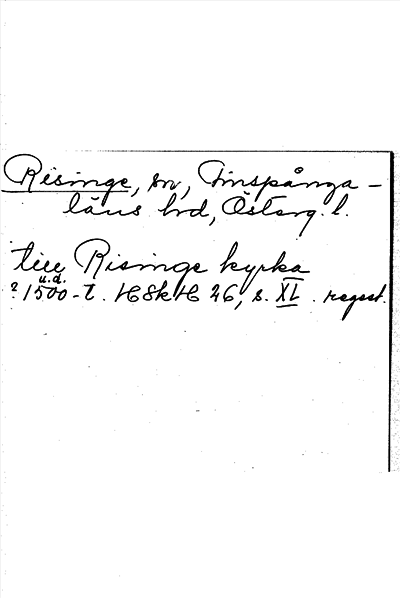 Risinge, sn, Finspånga-
läns hd, Österg. l.
till Risinge kyrka
u.d.
? 1500-t. HSkH 26, s. XL. regest.